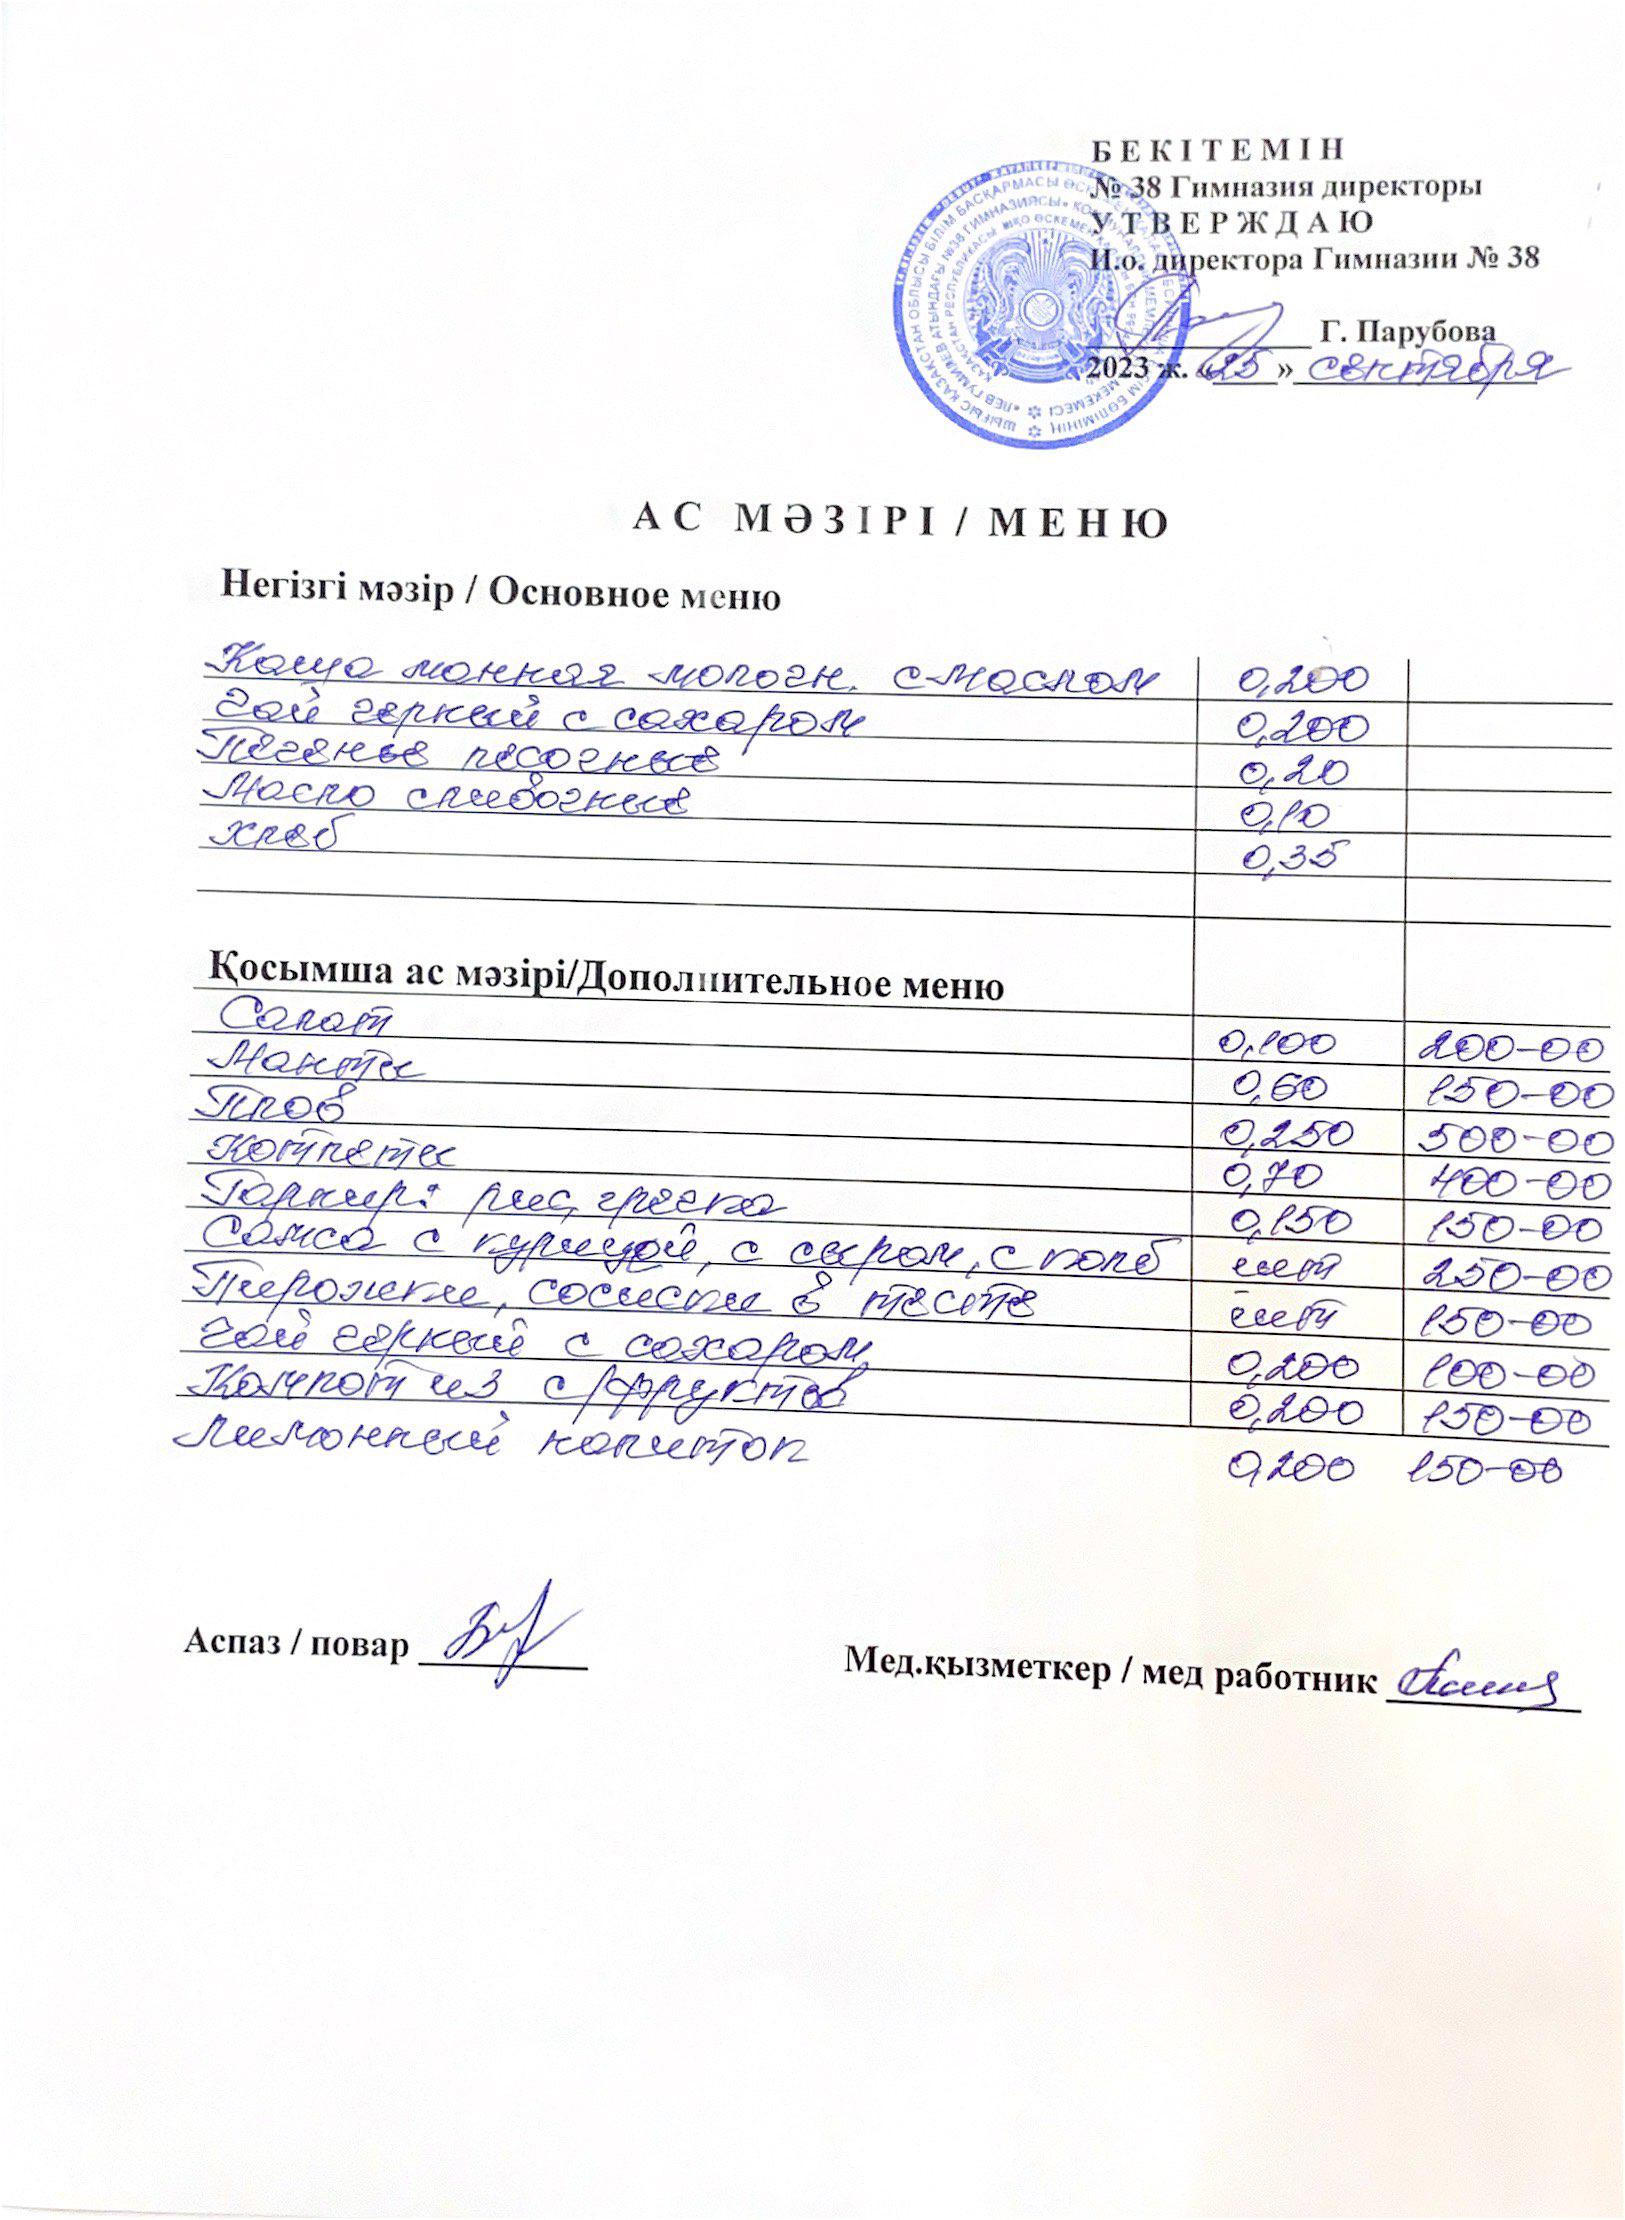 БЕКІТЕМІН
№ 38 Гимназия директоры
УТВЕРЖДАЮ
И.о. директора Гимназии № 38
Г. Парубова
2023 ж. «25» сентября
АС МӘЗІРІ / МЕНЮ
Негізгі мәзір / Основное меню
Каша манная молочн. с маслом 0,200
Чай черный с сахаром 0,200
Печенье песочные 0,20
Масло сливочные 0,10
хлеб 0,35
Қосымша ас мәзірі/Дополнительное меню
Салат 0,100 200-00
Манты 0,60 150-00
Плов 0,250 500-00
Котлеты 0,70 400-00
Гарнир: рис, гречка 0,150 150-00
Самса с курицей, с сыром, с колб шт 250-00
Пирожки, сосиски в тесте шт 150-00
Чай черный с сахаром 0,200 100-00
Компот из с/фруктов 0,200 150-00
Лимонный напиток 0,200 150-00
Аспаз / повар
Мед.қызметкер / мед работник